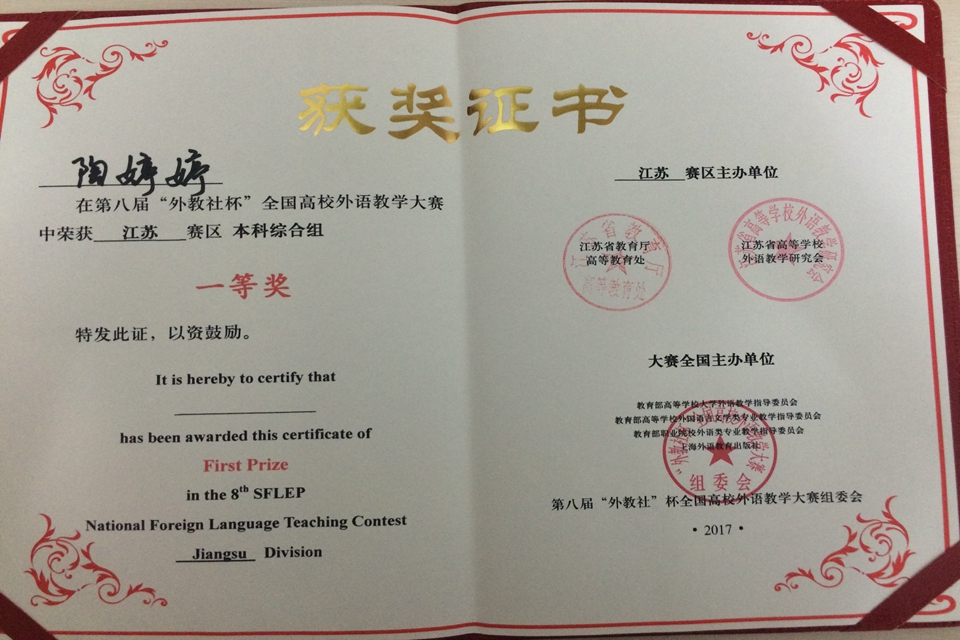 获奖证书
陶婷婷
在第八届“外教社杯”全国高校外语教学大赛
中荣获 江苏 赛区 本科综合组
一等奖
特发此证，以资鼓励。
It is hereby to certify that
has been awarded this certificate of
First Prize
in the 8th SFLEP
National Foreign Language Teaching Contest
Jiangsu Division
江苏 赛区主办单位
江苏省教育厅
高等教育处
江苏省教育厅
高等教育处
江苏省高等学校
外语教学研究会
江苏省高等学校外语教学研究会
大赛全国主办单位
教育部高等学校大学外语教学指导委员会
教育部高等学校外国语言文学类专业教学指导委员会
教育部职业院校外语类专业教学指导委员会
上海外语教育出版社
组委会
第八届“外教社”杯全国高校外语教学大赛组委会
·2017·